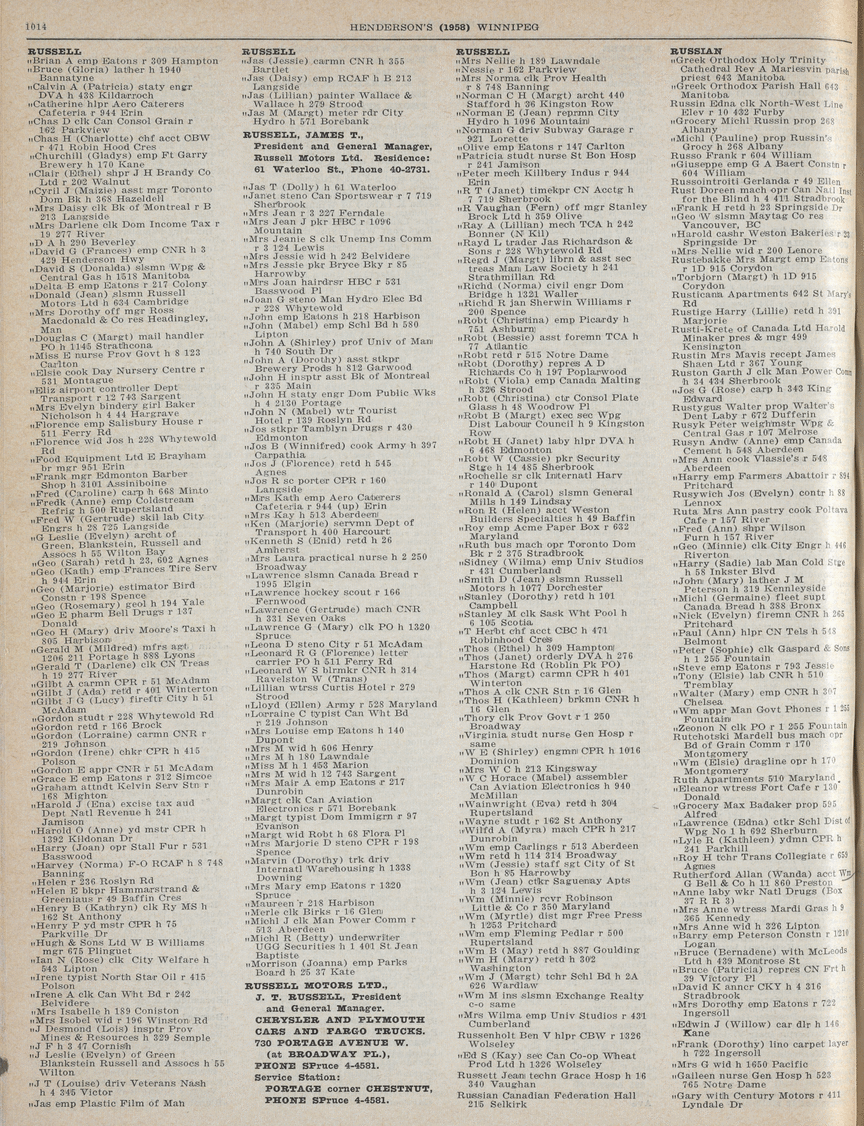 1014
HENDERSON'S (1958) WINNIPEG
RUSSELL
„Brian A emp Eatons r 309 Hampton
„Bruce (Gloria) lather h 1940
Bannatyne
„Calvin A (Patricia) staty engr
DVA h 438 Kildarroch
„Catherine hlpr Aero Caterers
Cafeteria r 944 Erin
„Chas D clk Can Consol Grain r
162 Parkview
„Chas H (Charlotte) chf acct CBW
r 471 Robin Hood Cres
„Churchill (Gladys) emp Ft Garry
Brewery h 170 Kane
„Clair (Ethel) shpr J H Brandy Co
Ltd r 202 Walnut
„Cyril J (Maizie) asst mgr Toronto
Dom Bk h 368 Hazeldell
„Mrs Daisy clk Bk of Montreal r B
213 Langside
„Mrs Darlene clk Dom Income Tax r
19 277 River
„D A h 290 Beverley
„David G (Frances) emp CNR h 3
429 Henderson Hwy
„David S (Donaida) slsmn Wpg &
Central Gas h 1518 Manitoba
„Delta B emp Eatons r 217 Colony
„Donald (Jean) slsmn Russell
Motors Ltd h 634 Cambridge
„Mrs Dorothy off mgr Ross
Macdonald & Co res Headingley,
Man
„Douglas C (Margt) mail handler
PO h 1145 Strathcona
„Miss E nurse Prov Govt h 8 123
Carlton
„Elsie cook Day Nursery Centre r
531 Montague
„Eliz airport controller Dept
Transport r 12 743 Sargent
„Mrs Evelyn bindery girl Baker
Nicholson h 4 44 Hargrave
„Florence emp Salisbury House r
511 Ferry Rd
„Florence wid Jos h 228 Whytewold
Rd
„Food Equipment Ltd E Brayham
br mgr 951 Erin
„Frank mgr Edmonton Barber
Shop h 3101 Assiniboine
„Fred (Caroline) carp h 668 Minto
„Fredk (Anne) emp Coldstream
Refrig h 500 Rupertsland
„Fred W (Gertrude) skil lab City
Engrs h 28 725 Langside
„G Leslie (Evelyn) archt of
Green, Blankstein, Russell and
Assocs h 55 Wilton Bay
„Geo (Sarah) retd h 23, 602 Agnes
„Geo (Kath) emp Frances Tire Serv
h 944 Erin
„Geo (Marjorie) estimator Bird
Constn r 198 Spence
„Geo (Rosemary) geol h 194 Yale
„Geo E pharm Bell Drugs r 137
Donald
„Geo H (Mary) driv Moore's Taxi h
805 Harbison
„Gerald M (Mildred) mfrs agt
1206 211 Portage h 888 Lyons
„Gerald T (Darlene) clk CN Treas
h 19 277 River
„Gilbt A carmn CPR r 51 McAdam
„Gilbt J (Ada) retd r 401 Winterton
„Gilbt J G (Lucy) fireftr City h 51
McAdam
„Gordon studt r 228 Whytewold Rd
„Gordon retd r 166 Brock
„Gordon (Lorraine) carmn CNR r
219 Johnson
„Gordon (Irene) chkr CPR h 415
Polson
„Gordon E appr CNR r 51 McAdam
„Grace E emp Eatons r 312 Simcoe
„Graham attndt Kelvin Serv Stn r
168 Mighton
„Harold J (Ena) excise tax aud
Dept Natl Revenue h 241
Jamison
„Harold O (Anne) yd mstr CPR h
1392 Kildonan Dr
„Harry (Joan) opr Stall Fur r 531
Basswood
„Harvey (Norma) F-O RCAF h 8 748
Banning
„Helen r 236 Roslyn Rd
„Helen E bkpr Hammarstrand &
Greenlaus r 49 Baffin Cres
„Henry B (Kathryn) clk Ry MS h
162 St Anthony
„Henry P yd mstr CPR h 75
Parkville Dr
„Hugh & Sons Ltd W B Williams
mgr 675 Plinguet
„Ian N (Rose) clk City Welfare h
543 Lipton
„Irene typist North Star Oil r 415
Polson
„Irene A clk Can Wht Bd r 242
Belvidere
„Mrs Isabelle h 189 Coniston
„Mrs Isobel wid r 196 Winston Rd
„J Desmond (Lois) insptr Prov
Mines & Resources h 329 Semple
„J F h 3 47 Cornish
„J Leslie (Evelyn) of Green
Blankstein Russell and Assocs h 55
Wilton
„J T (Louise) driv Veterans Nash
h 4 345 Victor
„Jas emp Plastic Film of Man
RUSSELL
„Jas (Jessie) carmn CNR h 355
Bartlet
„Jas (Daisy) emp RCAF h B 213
Langside
„Jas (Lillian) painter Wallace &
Wallace h 279 Strood
„Jas M (Margt) meter rdr City
Hydro h 571 Borebank
RUSSELL, JAMES T.,
President and General Manager,
Russell Motors Ltd. Residence:
61 Waterloo St., Phone 40-2731.
„Jas T (Dolly) h 61 Waterloo
„Janet steno Can Sportswear r 7 719
Sherbrook
„Mrs Jean r 3 227 Ferndale
„Mrs Jean J pkr HBC r 1096
Mountain
„Mrs Jeanie S clk Unemp Ins Comm
r 3 124 Lewis
„Mrs Jessie wid h 242 Belvidere
„Mrs Jessie pkr Bryce Bky r 85
Harrowby
„Mrs Joan hairdrsr HBC r 531
Basswood Pl
„Joan G steno Man Hydro Elec Bd
r 228 Whytewold
„John emp Eatons h 218 Harbison
„John (Mabel) emp Schl Bd h 580
Lipton
„John A (Shirley) prof Univ of Man
h 740 South Dr
„John A (Dorothy) asst stkpr
Brewery Prods h 812 Garwood
„John H insptr asst Bk of Montreal
r 325 Main
„John H staty engr Dom Public Wks
h 4 2130 Portage
„John N (Mabel) wtr Tourist
Hotel r 139 Roslyn Rd
„Jos stkpr Tamblyn Drugs r 430
Edmonton
„Jos B (Winnifred) cook Army h 397
Carpathia
„Jos J (Florence) retd h 545
Agnes
„Jos R sc porter CPR r 160
Langside
„Mrs Kath emp Aero Caterers
Cafeteria r 944 (up) Erin
„Mrs Kay h 513 Aberdeen
„Ken (Marjorie) servmn Dept of
Transport h 400 Harcourt
„Kenneth S (Enid) retd h 26
Amherst
„Mrs Laura practical nurse h 2 250
Broadway
„Lawrence slsmn Canada Bread r
1995 Elgin
„Lawrence hockey scout r 166
Fernwood
„Lawrence (Gertrude) mach CNR
h 331 Seven Oaks
„Lawrence G (Mary) clk PO h 1320
Spruce
„Leona D steno City r 51 McAdam
„Leonard R G (Florence) letter
carrier PO h 511 Ferry Rd
„Leonard W S blrmkr CNR h 314
Ravelston W (Trans)
„Lillian wtrss Curtis Hotel r 279
Strood
„Lloyd (Ellen) Army r 528 Maryland
„Lorraine C typist Can Wht Bd
r 219 Johnson
„Mrs Louise emp Eatons h 140
Dupont
„Mrs M wid h 606 Henry
„Mrs M h 180 Lawndale
„Miss M h 1 453 Marion
„Mrs M wid h 12 743 Sargent
„Mrs Mair A emp Eatons r 217
Dunrobin
„Margt clk Can Aviation
Electronics r 571 Borebank
„Margt typist Dom Immigrn r 97
Evanson
„Margt wid Robt h 68 Flora Pl
„Mrs Marjorie D steno CPR r 198
Spence
„Marvin (Dorothy) trk driv
Internatl Warehousing h 1338
Downing
„Mrs Mary emp Eatons r 1320
Spruce
„Maureen r 218 Harbison
„Merle clk Birks r 16 Glen
„Michl J clk Man Power Comm r
513 Aberdeen
„Michl R (Betty) underwriter
UGG Securities h 1 401 St Jean
Baptiste
„Morrison (Joanna) emp Parks
Board h 25 37 Kate
RUSSELL MOTORS LTD.,
J. T. RUSSELL, President
and General Manager.
CHRYSLER AND PLYMOUTH
CARS AND FARGO TRUCKS.
730 PORTAGE AVENUE W.
(at BROADWAY PL.),
PHONE SPruce 4-4581.
Service Station:
PORTAGE corner CHESTNUT,
PHONE SPruce 4-4581.
RUSSELL
„Mrs Nellie h 189 Lawndale
„Nessie r 162 Parkview
„Mrs Norma clk Prov Health
r 8 748 Banning
„Norman C H (Margt) archt 440
Stafford h 36 Kingston Row
„Norman E (Jean) reprmn City
Hydro h 1096 Mountain
„Norman G driv Subway Garage r
921 Lorette
„Olive emp Eatons r 147 Carlton
„Patricia studt nurse St Bon Hosp
r 241 Jamison
„Peter mech Killbery Indus r 944
Erin
„R T (Janet) timekpr CN Acctg h
7 719 Sherbrook
„R Vaughan (Fern) off mgr Stanley
Brock Ltd h 359 Olive
„Ray A (Lillian) mech TCA h 242
Bonner (N Kil)
„Rayd L trader Jas Richardson &
Sons r 228 Whytewold Rd
„Regd J (Margt) librn & asst sec
treas Man Law Society h 241
Strathmillan Rd
„Richd (Norma) civil engr Dom
Bridge h 1321 Waller
„Richd R jan Sherwin Williams r
200 Spence
„Robt (Christina) emp Picardy h
751 Ashburn
„Robt (Bessie) asst foremn TCA h
77 Atlantic
„Robt retd r 515 Notre Dame
„Robt (Dorothy) repres A D
Richards Co h 197 Poplarwood
„Robt (Viola) emp Canada Malting
h 326 Strood
„Robt (Christina) ctr Consol Plate
Glass h 48 Woodrow Pl
„Robt B (Margt) exec sec Wpg
Dist Labour Council h 9 Kingston
Row
„Robt H (Janet) laby hlpr DVA h
6 468 Edmonton
„Robt W (Cassie) pkr Security
Stge h 14 485 Sherbrook
„Rochelle sr clk Internatl Harv
r 140 Dupont
„Ronald A (Carol) slsmn General
Mills h 149 Lindsay
„Ron R (Helen) acct Weston
Builders Specialties h 49 Baffin
„Roy emp Acme Paper Box r 632
Maryland
„Ruth bus mach opr Toronto Dom
Bk r 2 375 Stradbrook
„Sidney (Wilma) emp Univ Studios
r 431 Cumberland
„Smith D (Jean) slsmn Russell
Motors h 1077 Dorchester
„Stanley (Dorothy) retd h 101
Campbell
„Stanley M clk Sask Wht Pool h
6 105 Scotia
„T Herbt chf acct CBC h 471
Robinhood Cres
„Thos (Ethel) h 309 Hampton
„Thos (Janet) orderly DVA h 276
Harstone Rd (Roblin Pk PO)
„Thos (Margt) carmn CPR h 401
Winterton
„Thos A clk CNR Stn r 16 Glen
„Thos H (Kathleen) brkmn CNR h
16 Glen
„Thory clk Prov Govt r 1 250
Broadway
„Virginia studt nurse Gen Hosp r
same
„W E (Shirley) engmn CPR h 1016
Dominion
„Mrs W C h 213 Kingsway
„W C Horace (Mabel) assembler
Can Aviation Electronics h 940
McMillan
„Wainwright (Eva) retd h 304
Rupertsland
„Wayne studt r 162 St Anthony
„Wilfd A (Myra) mach CPR h 217
Dunrobin
„Wm emp Carlings r 513 Aberdeen
„Wm retd h 114 314 Broadway
„Wm (Jessie) staff sgt City of St
Bon h 85 Harrowby
„Wm (Jean) ctkr Saguenay Apts
h 3 124 Lewis
„Wm (Minnie) rcvr Robinson
Little & Co r 350 Maryland
„Wm (Myrtle) dist mgr Free Press
h 1253 Pritchard
„Wm emp Fleming Pedlar r 500
Rupertsland
„Wm B (May) retd h 887 Goulding
„Wm H (Mary) retd h 302
Washington
„Wm J (Margt) tchr Schl Bd h 2A
626 Wardlaw
„Wm M ins slsmn Exchange Realty
C-o same
„Mrs Wilma emp Univ Studios r 431
Cumberland
Russenholt Ben V hlpr CBW r 1326
Wolseley
„Ed S (Kay) sec Can Co-op Wheat
Prod Ltd h 1326 Wolseley
Russett Jean techn Grace Hosp h 16
340 Vaughan
Russian Canadian Federation Hall
215 Selkirk
RUSSIAN
„Greek Orthodox Holy Trinity
Cathedral Rev A Mariesvin parish
priest 643 Manitoba
„Greek Orthodox Parish Hall 643
Manitoba
Russin Edna clk North-West Line
Elev r 10 432 Furby
„Grocery Michl Russin prop 268
Albany
„Michl (Pauline) prop Russin's
Grocy h 268 Albany
Russo Frank r 604 William
„Giuseppe emp G A Baert Constn r
604 William
Russointroitl Gerlanda r 49 Ellen
Rust Doreen mach opr Can Natl Inst
for the Blind h 4 411 Stradbrook
„Frank H retd h 23 Springside Dr
„Geo W slsmn Maytag Co res
Vancouver, BC
„Harold cashr Weston Bakeries r 23
Springside Dr
„Mrs Nellie wid r 200 Lenore
Rustebakke Mrs Margt emp Eatons
r 1D 915 Corydon
„Torbjorn (Margt) h 1D 915
Corydon
Rusticana Apartments 642 St Mary's
Rd
Rustige Harry (Lillie) retd h 391
Marjorie
Rusti-Krete of Canada Ltd Harold
Minaker pres & mgr 499
Kensington
Rustin Mrs Mavis recept James
Shaen Ltd r 367 Young
Ruston Garth J clk Man Power Com
h 34 434 Sherbrook
„Jos G (Rose) carp h 343 King
Edward
Rustygus Walter prop Walter's
Dent Laby r 672 Dufferin
Rusyk Peter weighmstr Wpg &
Central Gas r 107 Melrose
Rusyn Andw (Anne) emp Canada
Cement h 548 Aberdeen
„Mrs Ann cook Vlassie's r 548
Aberdeen
„Harry emp Farmers Abattoir r 894
Pritchard
Rusywich Jos (Evelyn) contr h 88
Lennox
Ruta Mrs Ann pastry cook Poltava
Cafe r 157 River
„Fred (Ann) shpr Wilson
Furn h 157 River
„Geo (Minnie) clk City Engr h 446
Riverton
„Harry (Sadie) lab Man Cold Stge
h 58 Inkster Blvd
„John (Mary) lather J M
Peterson h 319 Kennleyside
„Michl (Germaine) fleet supt
Canada Bread h 388 Bronx
„Nick (Evelyn) firemn CNR h 265
Pritchard
„Paul (Ann) hlpr CN Tels h 548
Belmont
„Peter (Sophie) clk Gaspard & Sons
h 1 255 Fountain
„Steve emp Eatons r 793 Jessie
„Tony (Elsie) lab CNR h 510
Tremblay
„Walter (Mary) emp CNR h 307
Chelsea
„Wm appr Man Govt Phones r 1 255
Fountain
„Zeonon N clk PO r 1 255 Fountain
Rutchotski Mardell bus mach opr
Bd of Grain Comm r 170
Montgomery
„Wm (Elsie) dragline opr h 170
Montgomery
Ruth Apartments 510 Maryland
„Eleanor wtress Fort Cafe r 130
Donald
„Grocery Max Badaker prop 595
Alfred
„Lawrence (Edna) ctkr Schl Dist of
Wpg No 1 h 692 Sherburn
„Lyle R (Kathleen) ydmn CPR h
241 Parkhill
„Roy H tchr Trans Collegiate r 659
Agnes
Rutherford Allan (Wanda) acct Wm
G Bell & Co h 11 860 Preston
„Anne laby wkr Natl Drugs (Box
37 R R 3)
„Mrs Anne wtress Mardi Gras h 9
365 Kennedy
„Mrs Anne wid h 326 Lipton
„Barry emp Peterson Constn r 1210
Logan
„Bruce (Bernadene) with McLeods
Ltd h 439 Montrose St
„Bruce (Patricia) repres CN Frt h
39 Victory Pl
„David K anncr CKY h 4 316
Stradbrook
„Mrs Dorothy emp Eatons r 722
Ingersoll
„Edwin J (Willow) car dlr h 146
Kane
„Frank (Dorothy) lino carpet layer
h 722 Ingersoll
„Mrs G wid h 1650 Pacific
„Gaileen nurse Gen Hosp h 523
765 Notre Dame
„Gary with Century Motors r 411
Lyndale Dr